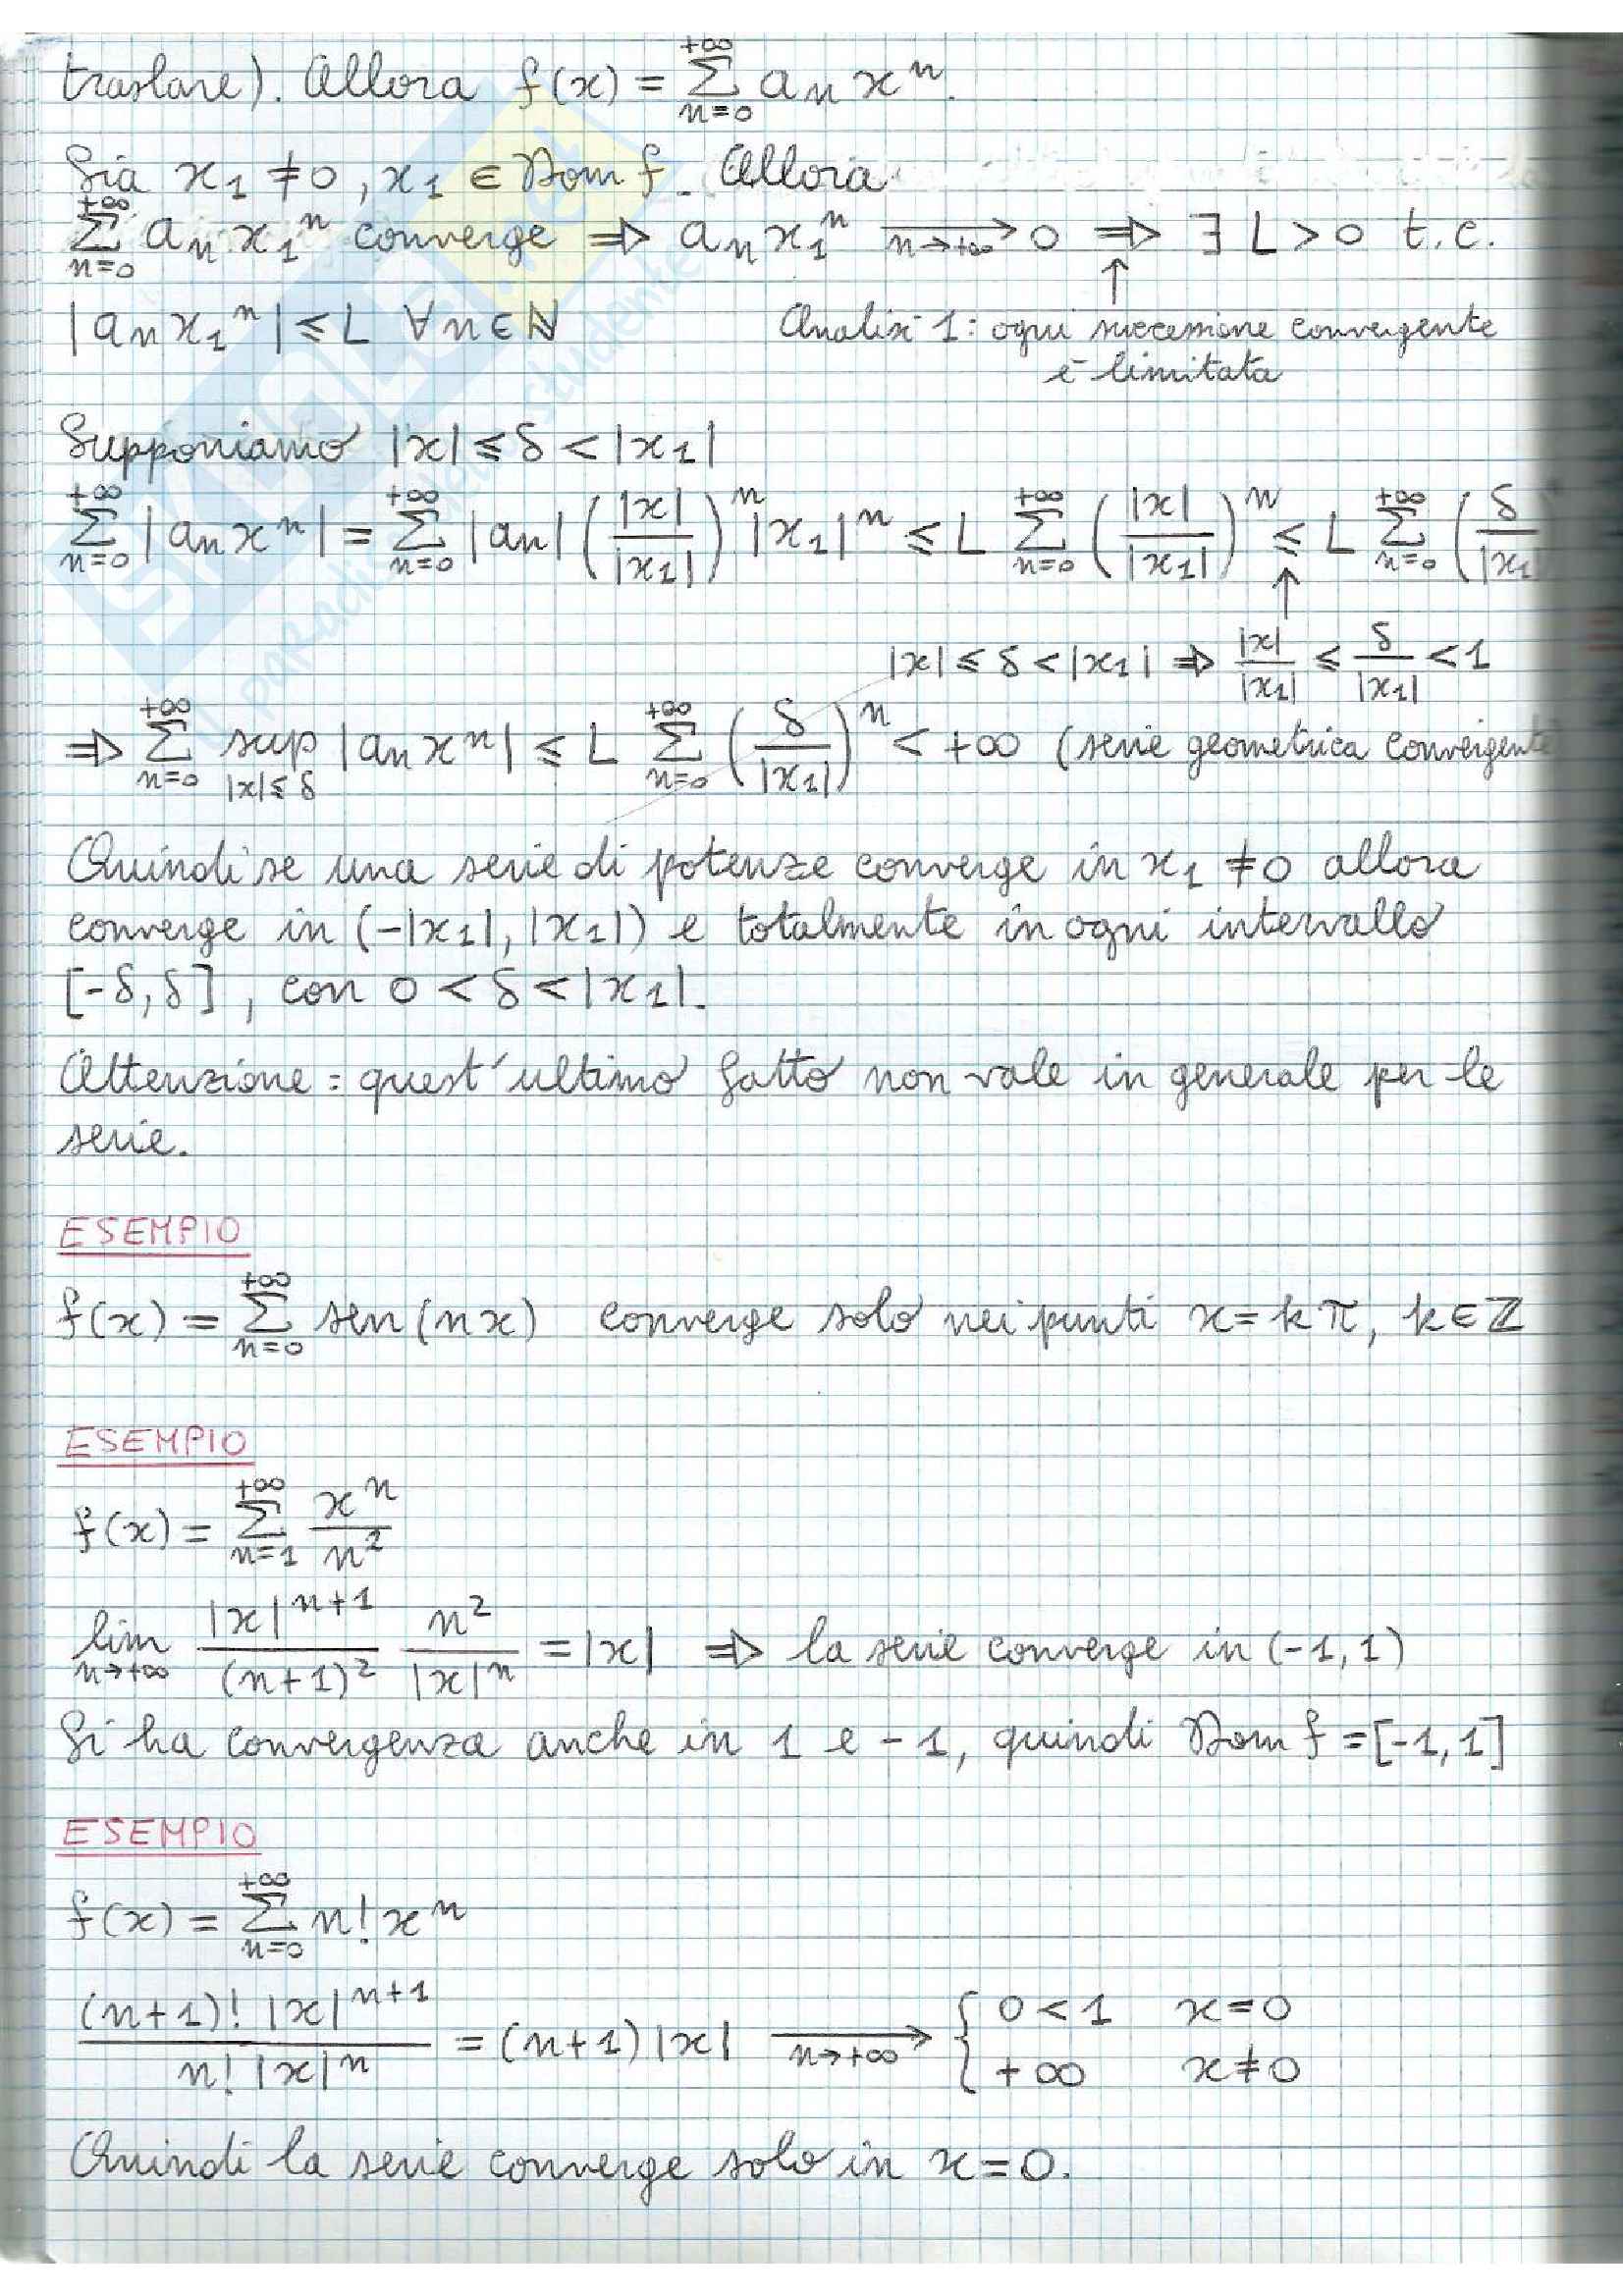 traslare). Allora f(x) = ∑_{n=0}^{+∞} a_n x^n.
Sia x_1 ≠ 0, x_1 ∈ Dom f. Allora
∑_{n=0}^{+∞} a_n x_1^n converge ⇒ a_n x_1^n ⟶_{n→+∞} 0 ⇒ ∃ L > 0 t.c.
↑
|a_n x_1^n| ≤ L ∀n∈ℕ Analisi 1: ogni successione convergente
è limitata
Supponiamo |x| ≤ δ < |x_1|
∑_{n=0}^{+∞} |a_n x^n| = ∑_{n=0}^{+∞} |a_n| (|x|/|x_1|)^n |x_1|^n ≤ L ∑_{n=0}^{+∞} (|x|/|x_1|)^n ≤ L ∑_{n=0}^{+∞} (δ/|x_1
↑
|x| ≤ δ < |x_1| ⇒ |x|/|x_1| ≤ δ/|x_1| < 1
⇒ ∑_{n=0}^{+∞} sup_{|x|≤δ} |a_n x^n| ≤ L ∑_{n=0}^{+∞} (δ/|x_1|)^n < +∞ (serie geometrica convergente
Quindi se una serie di potenze converge in x_1 ≠ 0 allora
converge in (-|x_1|, |x_1|) e totalmente in ogni intervallo
[-δ, δ], con 0 < δ < |x_1|.
Attenzione: quest'ultimo fatto non vale in generale per le
serie.
ESEMPIO
f(x) = ∑_{n=0}^{+∞} sen(nx) converge solo nei punti x = kπ, k∈ℤ
ESEMPIO
f(x) = ∑_{n=1}^{+∞} x^n/n^2
lim_{n→+∞} |x|^{n+1}/(n+1)^2 n^2/|x|^n = |x| ⇒ la serie converge in (-1,1)
Si ha convergenza anche in 1 e -1, quindi Dom f = [-1,1]
ESEMPIO
f(x) = ∑_{n=0}^{+∞} n! x^n
(n+1)! |x|^{n+1}/n! |x|^n = (n+1)|x| ⟶_{n→+∞} { 0 < 1 x = 0
+∞ x ≠ 0
Quindi la serie converge solo in x = 0.